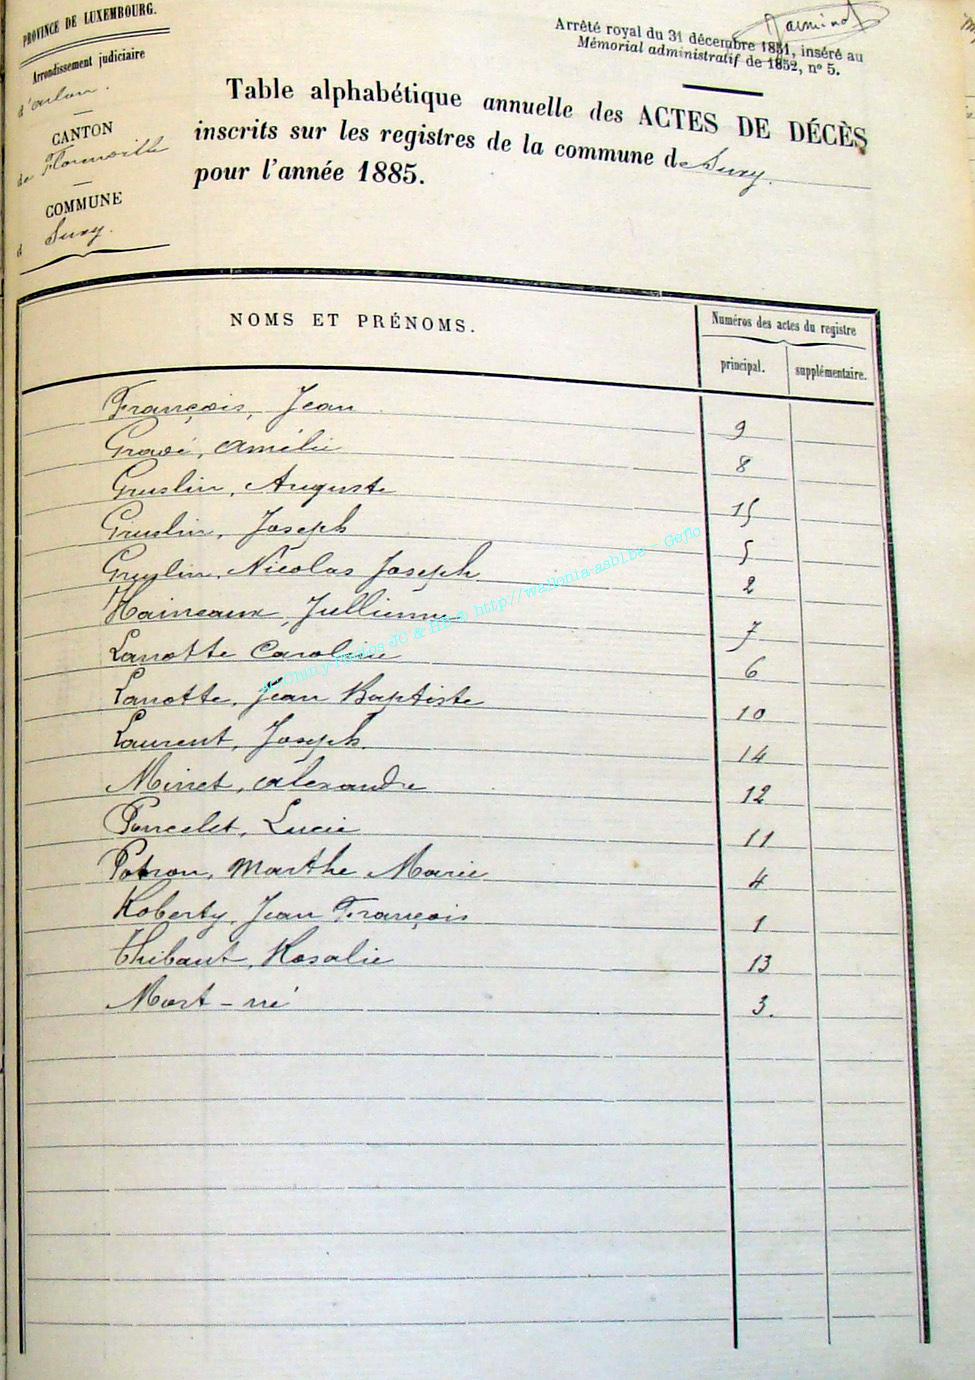 PROVINCE DE LUXEMBOURG.
Arrondissement judiciaire
d'Arlon.
CANTON
de Florenville
COMMUNE
d Suxy.
Arrêté royal du 31 décembre 1831, inséré au
Mémorial administratif de 1832, n° 5.
Table alphabétique annuelle des ACTES DE DÉCÈS
inscrits sur les registres de la commune de Suxy.
pour l'année 1885.
NOMS ET PRÉNOMS.
Numéros des actes du registre
principal. supplémentaire.
François, Jean 9
Gravé, Amélie 8
Gruslin, Auguste 15
Gruslin, Joseph 5
Gruslin, Nicolas Joseph 2
Haineaux, Jullienne 7
Lanotte Caroline 6
Lanotte, Jean Baptiste 10
Laurent, Joseph 14
Minet, Alexandre 12
Poncelet, Lucie 11
Potron, Marthe Marie 4
Roberty, Jean François 1
Thibaut, Rosalie 13
Mort-né 3.
http://wallonia-asbl.be - Géflo